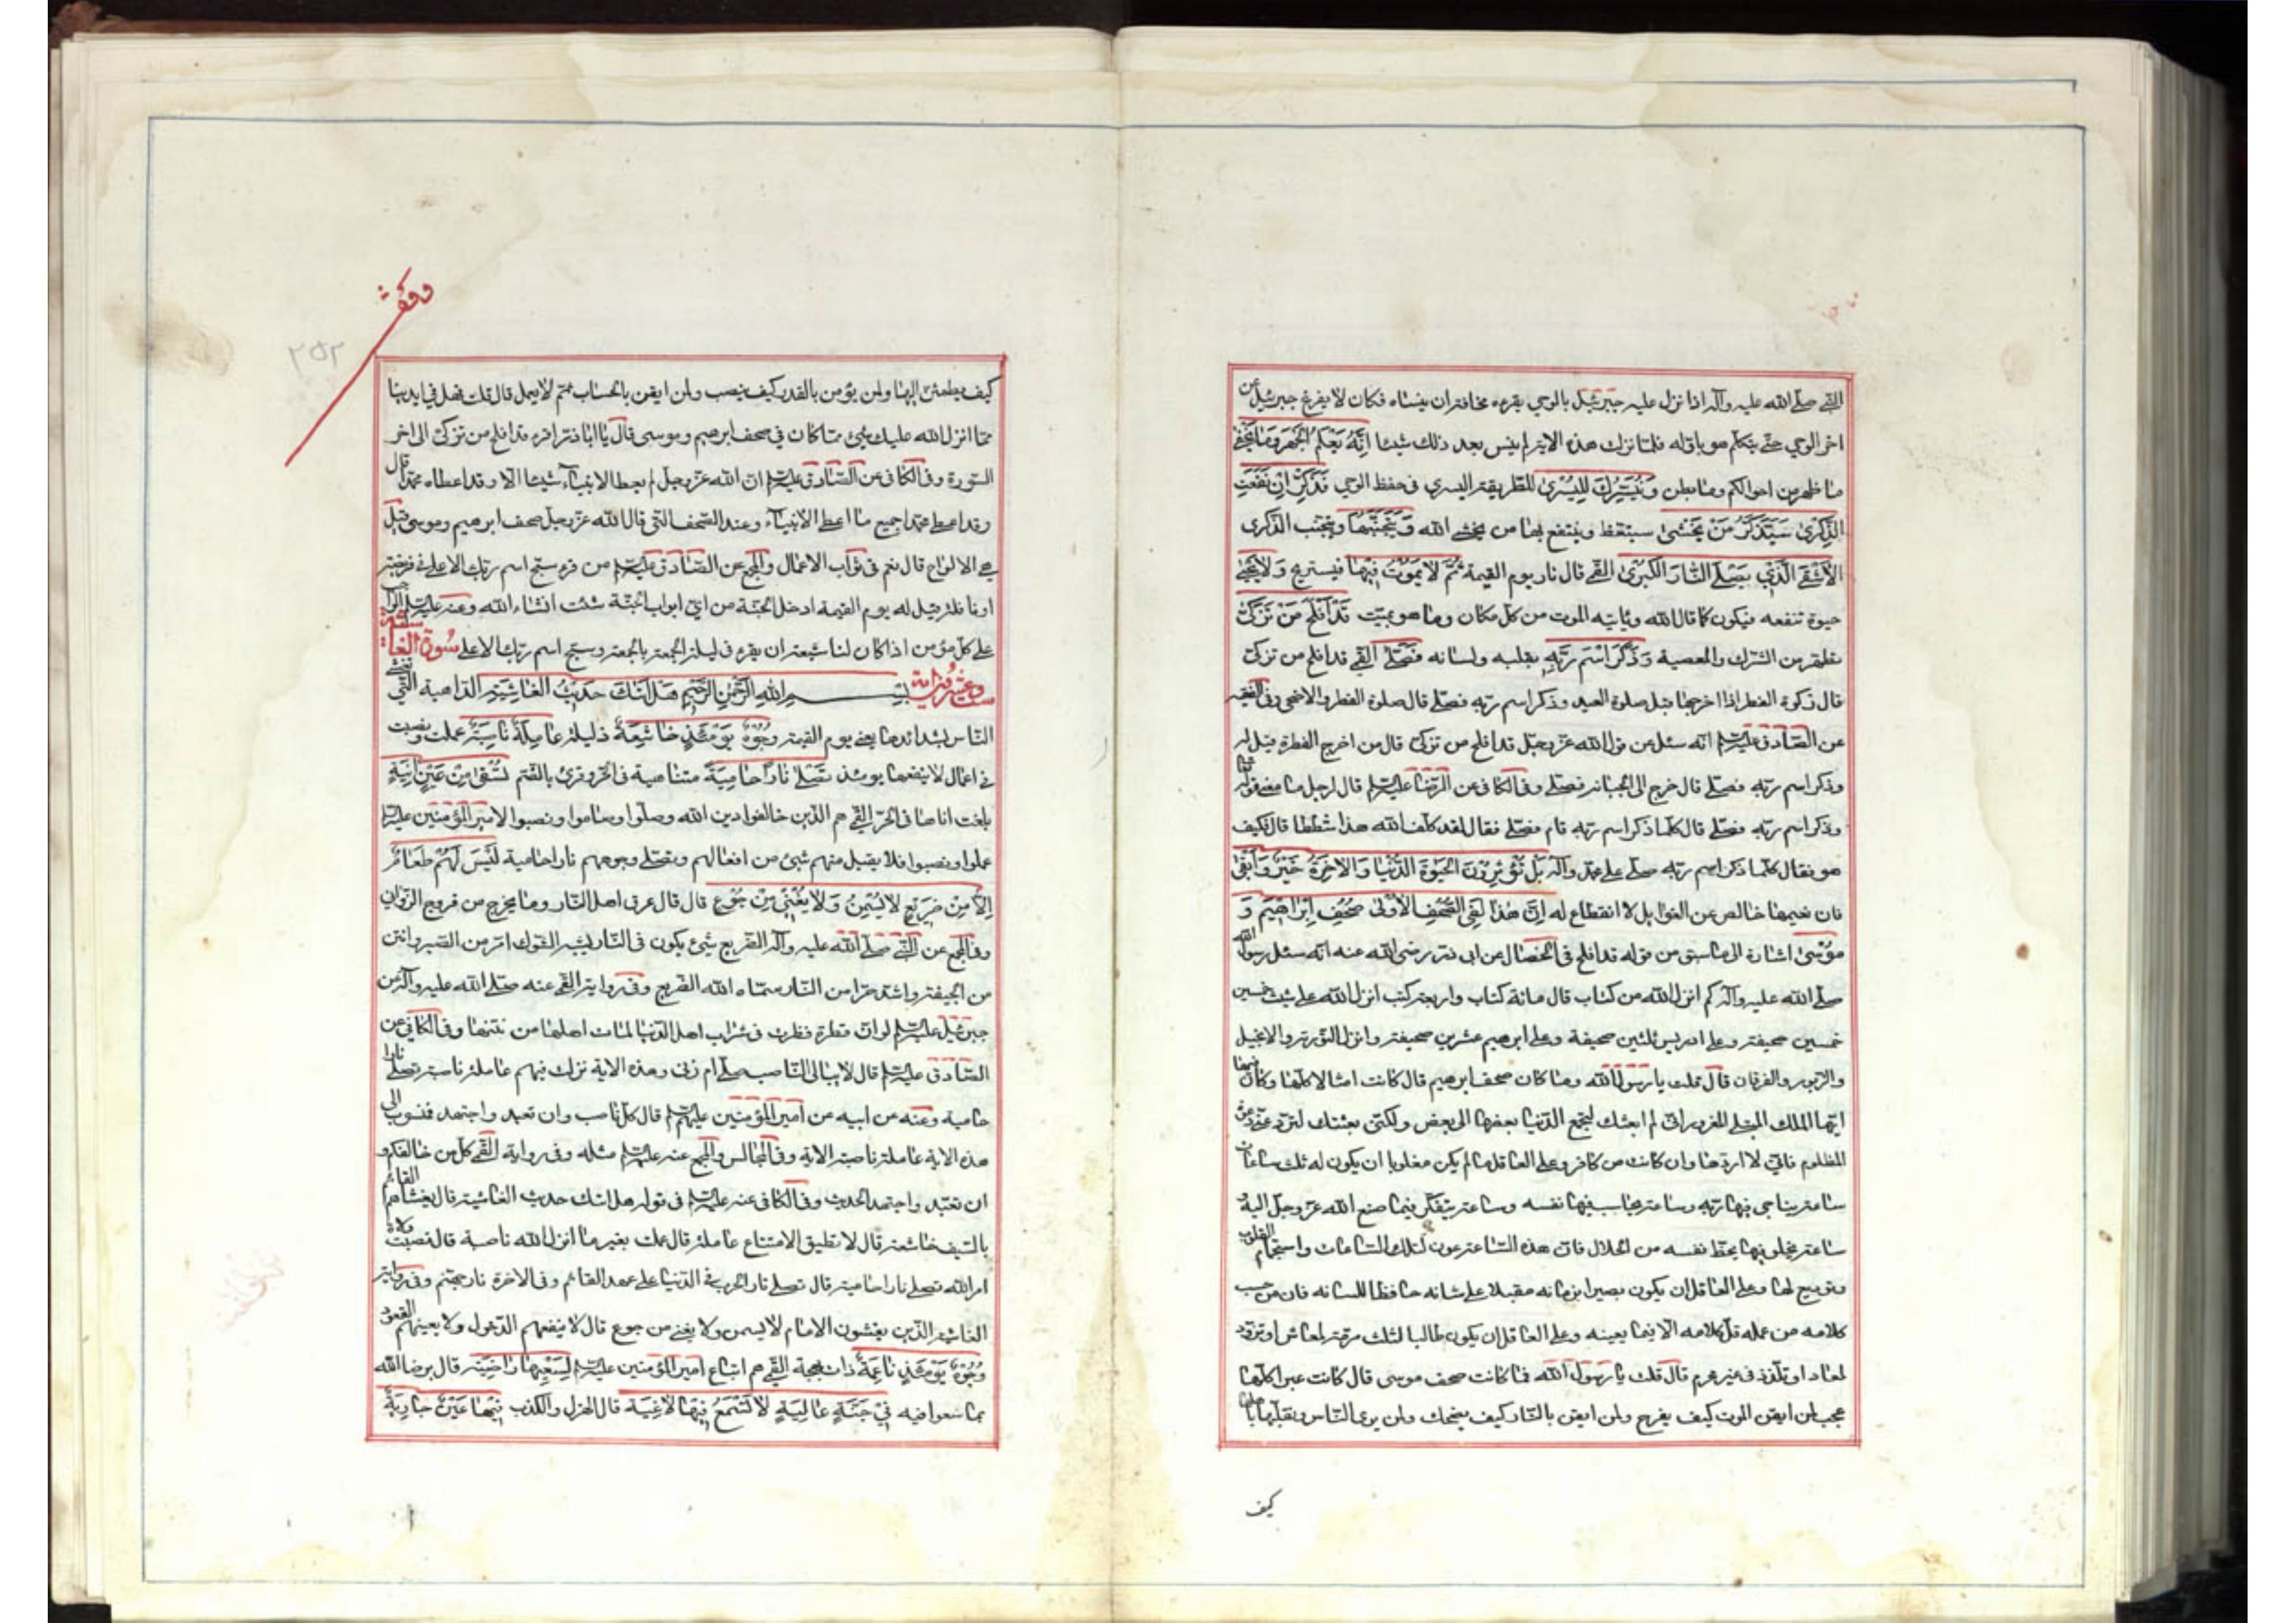 النبي صلى الله عليه وآله اذا نزل عليه جبرئيل بالوحي يقرءه مخافة ان ينساه فكان لا يفرغ جبرئيل من
اخر الوحي حتى يتكلم هو باوله فلما نزلت هذه الاية لم ينس بعد ذلك شيئا اِنَّهُ يَعْلَمُ الْجَهْرَ وَمَا يَخْفٰى
ما ظهر من احوالكم وما بطن وَنُيَسِّرُكَ لِلْيُسْرٰى للطريقة اليسرى في حفظ الوحي فَذَكِّرْ اِنْ نَفَعَتِ
الذِّكْرٰى سَيَذَّكَّرُ مَنْ يَخْشٰى سيتعظ وينتفع بها من يخشى الله وَيَتَجَنَّبُهَا ويتجنب الذكرى
الْاَشْقَى الَّذِي يَصْلَى النَّارَ الْكُبْرٰى القمي قال نار يوم القيمة ثُمَّ لَا يَمُوتُ فِيهَا فيستريح وَلَا يَحْيٰى
حيوة تنفعه فيكون كما قال الله وياتيه الموت من كل مكان وما هو بميت قَدْ اَفْلَحَ مَنْ تَزَكّٰى
تطهر من الشرك والمعصية وَذَكَرَ اسْمَ رَبِّهِ بقلبه ولسانه فَصَلّٰى القمي قد افلح من تزكى
قال زكوة الفطر اذا اخرجها قبل صلوة العيد وذكر اسم ربه فصلى قال صلوة الفطر والاضحى وفي الفقيه
عن الصادق عليه السلام انه سئل عن قول الله عز وجل قد افلح من تزكى قال من اخرج الفطرة قيل له
وذكر اسم ربه فصلى قال خرج الى الجبانة فصلى وفي الكافي عن الرضا عليه السلام قال لرجل ما معنى قوله تعالى
وذكر اسم ربه فصلى قال كلما ذكر اسم ربه قام فصلى فقال لقد كلف الله هذا شططا قال فكيف
هو فقال كلما ذكر اسم ربه صلى على محمد وآله بَلْ تُؤْثِرُونَ الْحَيٰوةَ الدُّنْيَا وَالْاٰخِرَةُ خَيْرٌ وَاَبْقٰى
فان نعيمها خالص عن الغوايل لا انقطاع له اِنَّ هٰذَا لَفِي الصُّحُفِ الْاُولٰى صُحُفِ اِبْرٰاهِيمَ وَ
مُوسٰى اشارة الى ما سبق من قوله قد افلح في الخصال عن ابي ذر رضي الله عنه انه سئل رسول الله
صلى الله عليه وآله كم انزل الله من كتاب قال مائة كتاب واربعة كتب انزل الله على شيث خمسين
خمسين صحيفة وعلى ادريس ثلثين صحيفة وعلى ابرهيم عشرين صحيفة وانزل التورية والانجيل
والزبور والفرقان قال قلت يا رسول الله وما كان صحف ابرهيم قال كانت امثالا كلها وكان فيها
ايها الملك المبتلى المغرور اني لم ابعثك لتجمع الدنيا بعضها الى بعض ولكني بعثتك لترد عني دعوة
المظلوم فاني لا اردها وان كانت من كافر وعلى العاقل ما لم يكن مغلوبا ان يكون له ثلث ساعات
ساعة يناجي فيها ربه وساعة يحاسب فيها نفسه وساعة يتفكر فيما صنع الله عز وجل اليه و
ساعة يخلو فيها بحظ نفسه من الحلال فان هذه الساعة عون لتلك الساعات واستجمام القلوب
وتوديع لها وعلى العاقل ان يكون بصيرا بزمانه مقبلا على شانه حافظا للسانه فان من حسب
كلامه من عمله قل كلامه الا فيما يعنيه وعلى العاقل ان يكون طالبا لثلث مرمة لمعاش او تزود
لمعاد او تلذذ في غير محرم قال قلت يا رسول الله فما كانت صحف موسى قال كانت عبرا كلها
عجب لمن ايقن بالموت كيف يفرح ولمن ايقن بالنار كيف يضحك ولمن يرى الدنيا وتقلبها باهلها
كيف
وقف
٢٥٢
كيف يطمئن اليها ولمن يؤمن بالقدر كيف ينصب ولمن ايقن بالحساب ثم لا يعمل قال قلت فهل في ايدينا
مما انزل الله عليك شيء مما كان في صحف ابرهيم وموسى قال يا اباذر اقرء قد افلح من تزكى الى اخر
السورة وفي الكافي عن الصادق عليه السلام ان الله عز وجل لم يعط الانبياء شيئا الا وقد اعطاه محمدا قال
وقد اعطى محمدا جميع ما اعطى الانبياء وعندنا الصحف التي قال الله عز وجل صحف ابرهيم وموسى قيل
هي الالواح قال نعم في ثواب الاعمال والمجمع عن الصادق عليه السلام من قرء سبح اسم ربك الاعلى في فريضة
او نافلة قيل له يوم القيمة ادخل الجنة من اي ابواب الجنة شئت انشاء الله وعنه عليه السلام الواجب
على كل مؤمن اذا كان لنا شيعة ان يقرء في ليلة الجمعة بالجمعة وسبح اسم ربك الاعلى سُورَة الغاشية
ست وعشرون اية بِسْمِ اللهِ الرَّحْمٰنِ الرَّحِيمِ هَلْ اَتٰيكَ حَدِيثُ الْغَاشِيَةِ الداهية التي تغشي
الناس بشدائدها يعني يوم القيمة وُجُوهٌ يَوْمَئِذٍ خَاشِعَةٌ ذليلة عَامِلَةٌ نَاصِبَةٌ عملت ونصبت
في اعمال لا ينفعها يومئذ تَصْلٰى نَارًا حَامِيَةً متناهية في الحر وقرئ بالضم تُسْقٰى مِنْ عَيْنٍ اٰنِيَةٍ
بلغت اناها في الحر القمي هم الذين خالفوا دين الله وصلوا وصاموا ونصبوا لامير المؤمنين عليه السلام
عملوا ونصبوا فلا يقبل منهم شيئ من افعالهم وتصلى وجوههم نارا حامية لَيْسَ لَهُمْ طَعَامٌ
اِلَّا مِنْ ضَرِيعٍ لَا يُسْمِنُ وَلَا يُغْنِي مِنْ جُوعٍ قال قال عرق اهل النار وما يخرج من فروج الزواني
وفي المجمع عن النبي صلى الله عليه وآله الضريع شيئ يكون في النار يشبه الشوك امر من الصبر وانتن
من الجيفة واشد حرا من النار سماه الله الضريع وفي رواية القمي عنه صلى الله عليه وآله عن
جبرئيل عليه السلام لو ان قطرة قطرت في شراب اهل الدنيا لمات اهلها من نتنها وفي الكافي عن
الصادق عليه السلام قال لا يبالي الناصب صلى ام زنى وهذه الاية نزلت فيهم عاملة ناصبة تصلى نارا
حامية وعنه عن ابيه عن امير المؤمنين عليهم السلام قال كل ناصب وان تعبد واجتهد فمنسوب الى
هذه الاية عاملة ناصبة الاية وفي المجالس والمجمع عنه عليه السلام مثله وفي رواية القمي كل من خالفكم و
ان تعبد واجتهد الحديث وفي الكافي عنه عليه السلام في قوله هل اتيك حديث الغاشية قال يغشاهم القائم
بالسيف خاشعة قال لا تطيق الامتناع عاملة قال عملت بغير ما انزل الله ناصبة قال نصبت ولاة
امر الله تصلى نارا حامية قال تصلى نار الحرب في الدنيا على عهد القائم وفي الاخرة نار جهنم وفي رواية
الغاشية الذين يغشون الامام لا يسمن ولا يغني من جوع قال لا ينفعهم الدخول ولا يغنيهم القعود
وُجُوهٌ يَوْمَئِذٍ نَاعِمَةٌ ذات بهجة القمي هم اتباع امير المؤمنين عليه السلام لِسَعْيِهَا رَاضِيَةٌ قال يرضى الله
بما سعوا فيه فِي جَنَّةٍ عَالِيَةٍ لَا تَسْمَعُ فِيهَا لَاغِيَةً قال الهزل والكذب فِيهَا عَيْنٌ جَارِيَةٌ